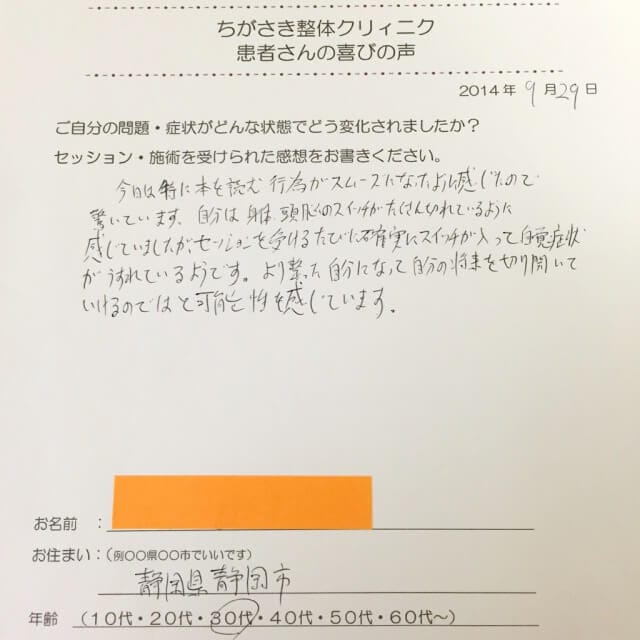 ちがさき整体クリィニク
患者さんの喜びの声
2014年 9月29日
ご自分の問題・症状がどんな状態でどう変化されましたか？
セッション・施術を受けられた感想をお書きください。
今日は特に本を読む行為がスムーズになったように感じたので
驚いています。自分は身体、頭脳のスイッチがたくさん切れているように
感じていましたが、セッションを受けるたびに確実にスイッチが入って自覚症状
がうすれているようです。より整った自分になって自分の将来を切り開いて
いけるのではと可能性を感じています。
お名前 ：
お住まい：（例〇〇県〇〇市でいいです）
静岡県静岡市
年齢 （10代・20代・30代・40代・50代・60代～）